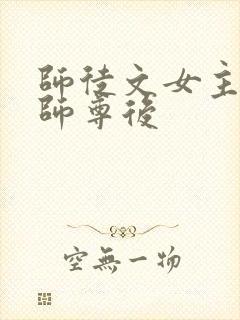 師徒文女主
師尊後
空無一物